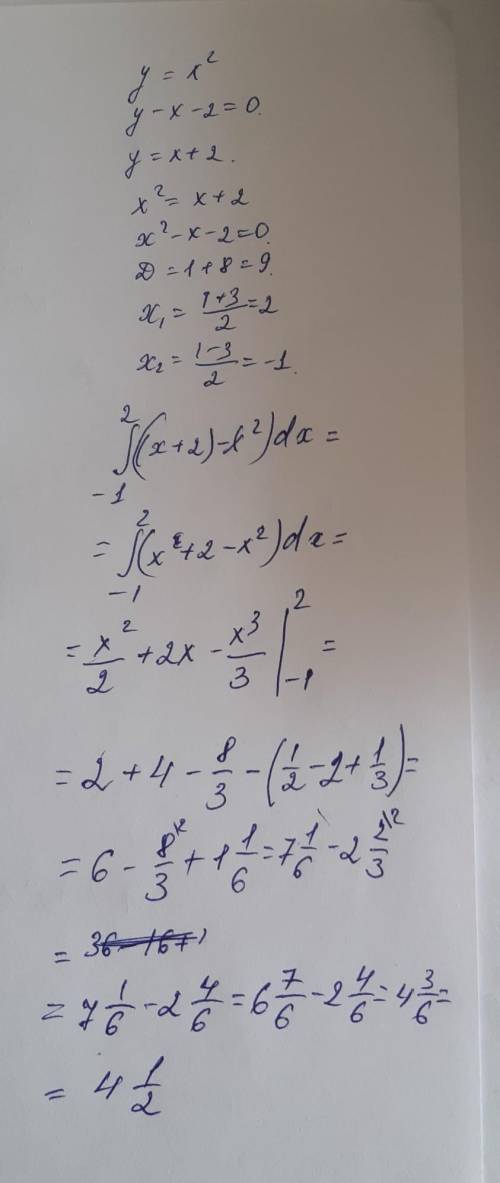 y = x²
y - x - 2 = 0.
y = x + 2.
x² = x + 2
x² - x - 2 = 0.
D = 1 + 8 = 9.
x₁ = (1+3)/2 = 2
x₂ = (1-3)/2 = -1.
∫₋₁² ((x+2) - x²) dx =
= ∫₋₁² (x + 2 - x²) dx =
= x²/2 + 2x - x³/3 |₋₁² =
= 2 + 4 - 8/3 - (1/2 - 2 + 1/3) =
= 6 - 8/3 \² + 1 1/6 = 7 1/6 - 2 2/3 \²
=
= 7 1/6 - 2 4/6 = 6 7/6 - 2 4/6 = 4 3/6 =
= 4 1/2